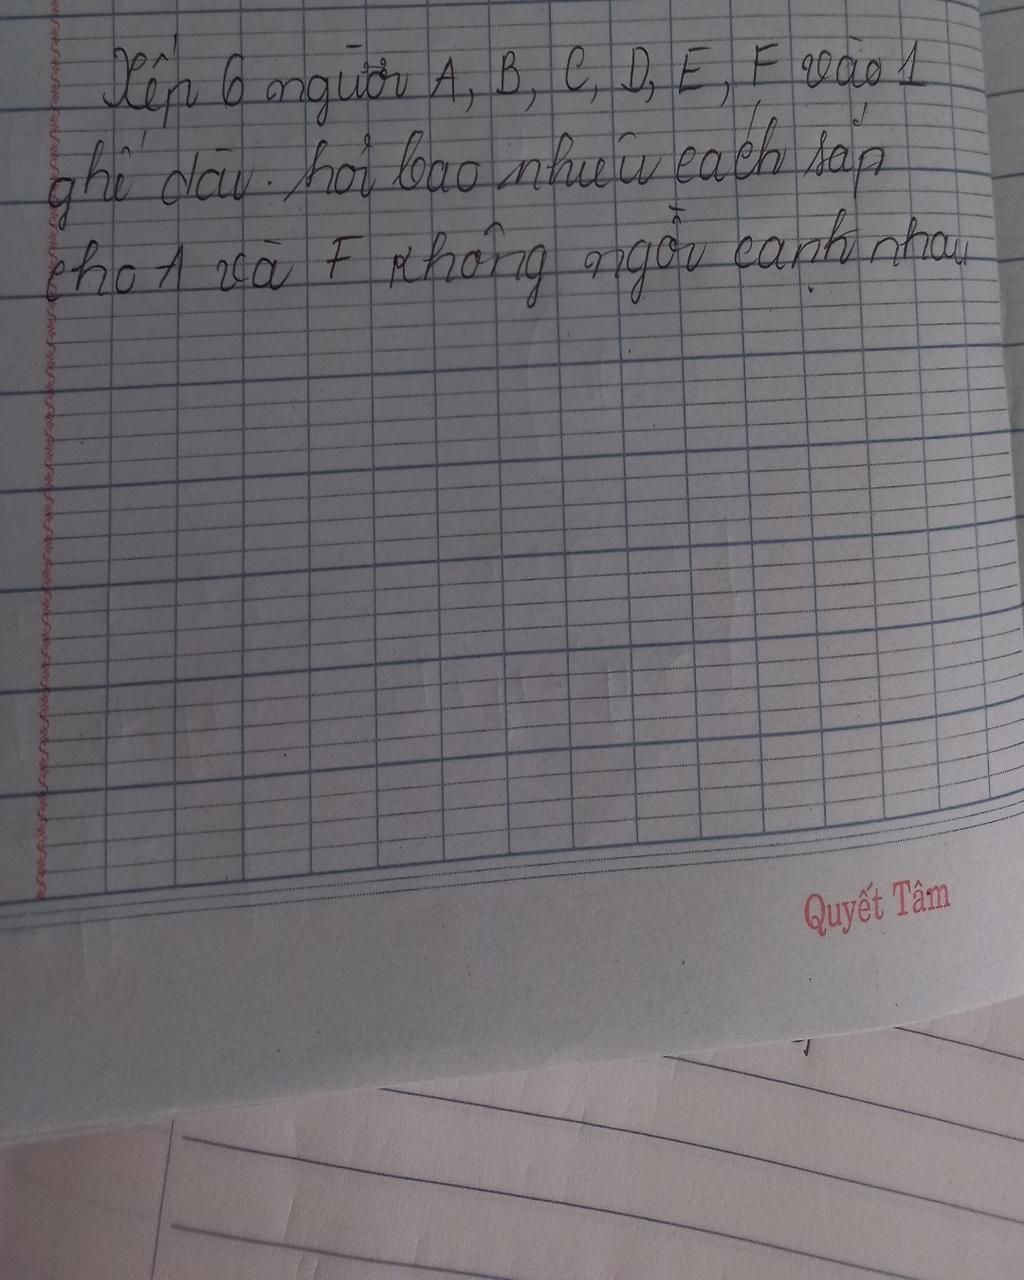 Xếp 6 người A, B, C, D, E, F vào 1
ghế dài. hỏi bao nhiêu cách sắp
cho A và F không ngồi cạnh nhau
Quyết Tâm